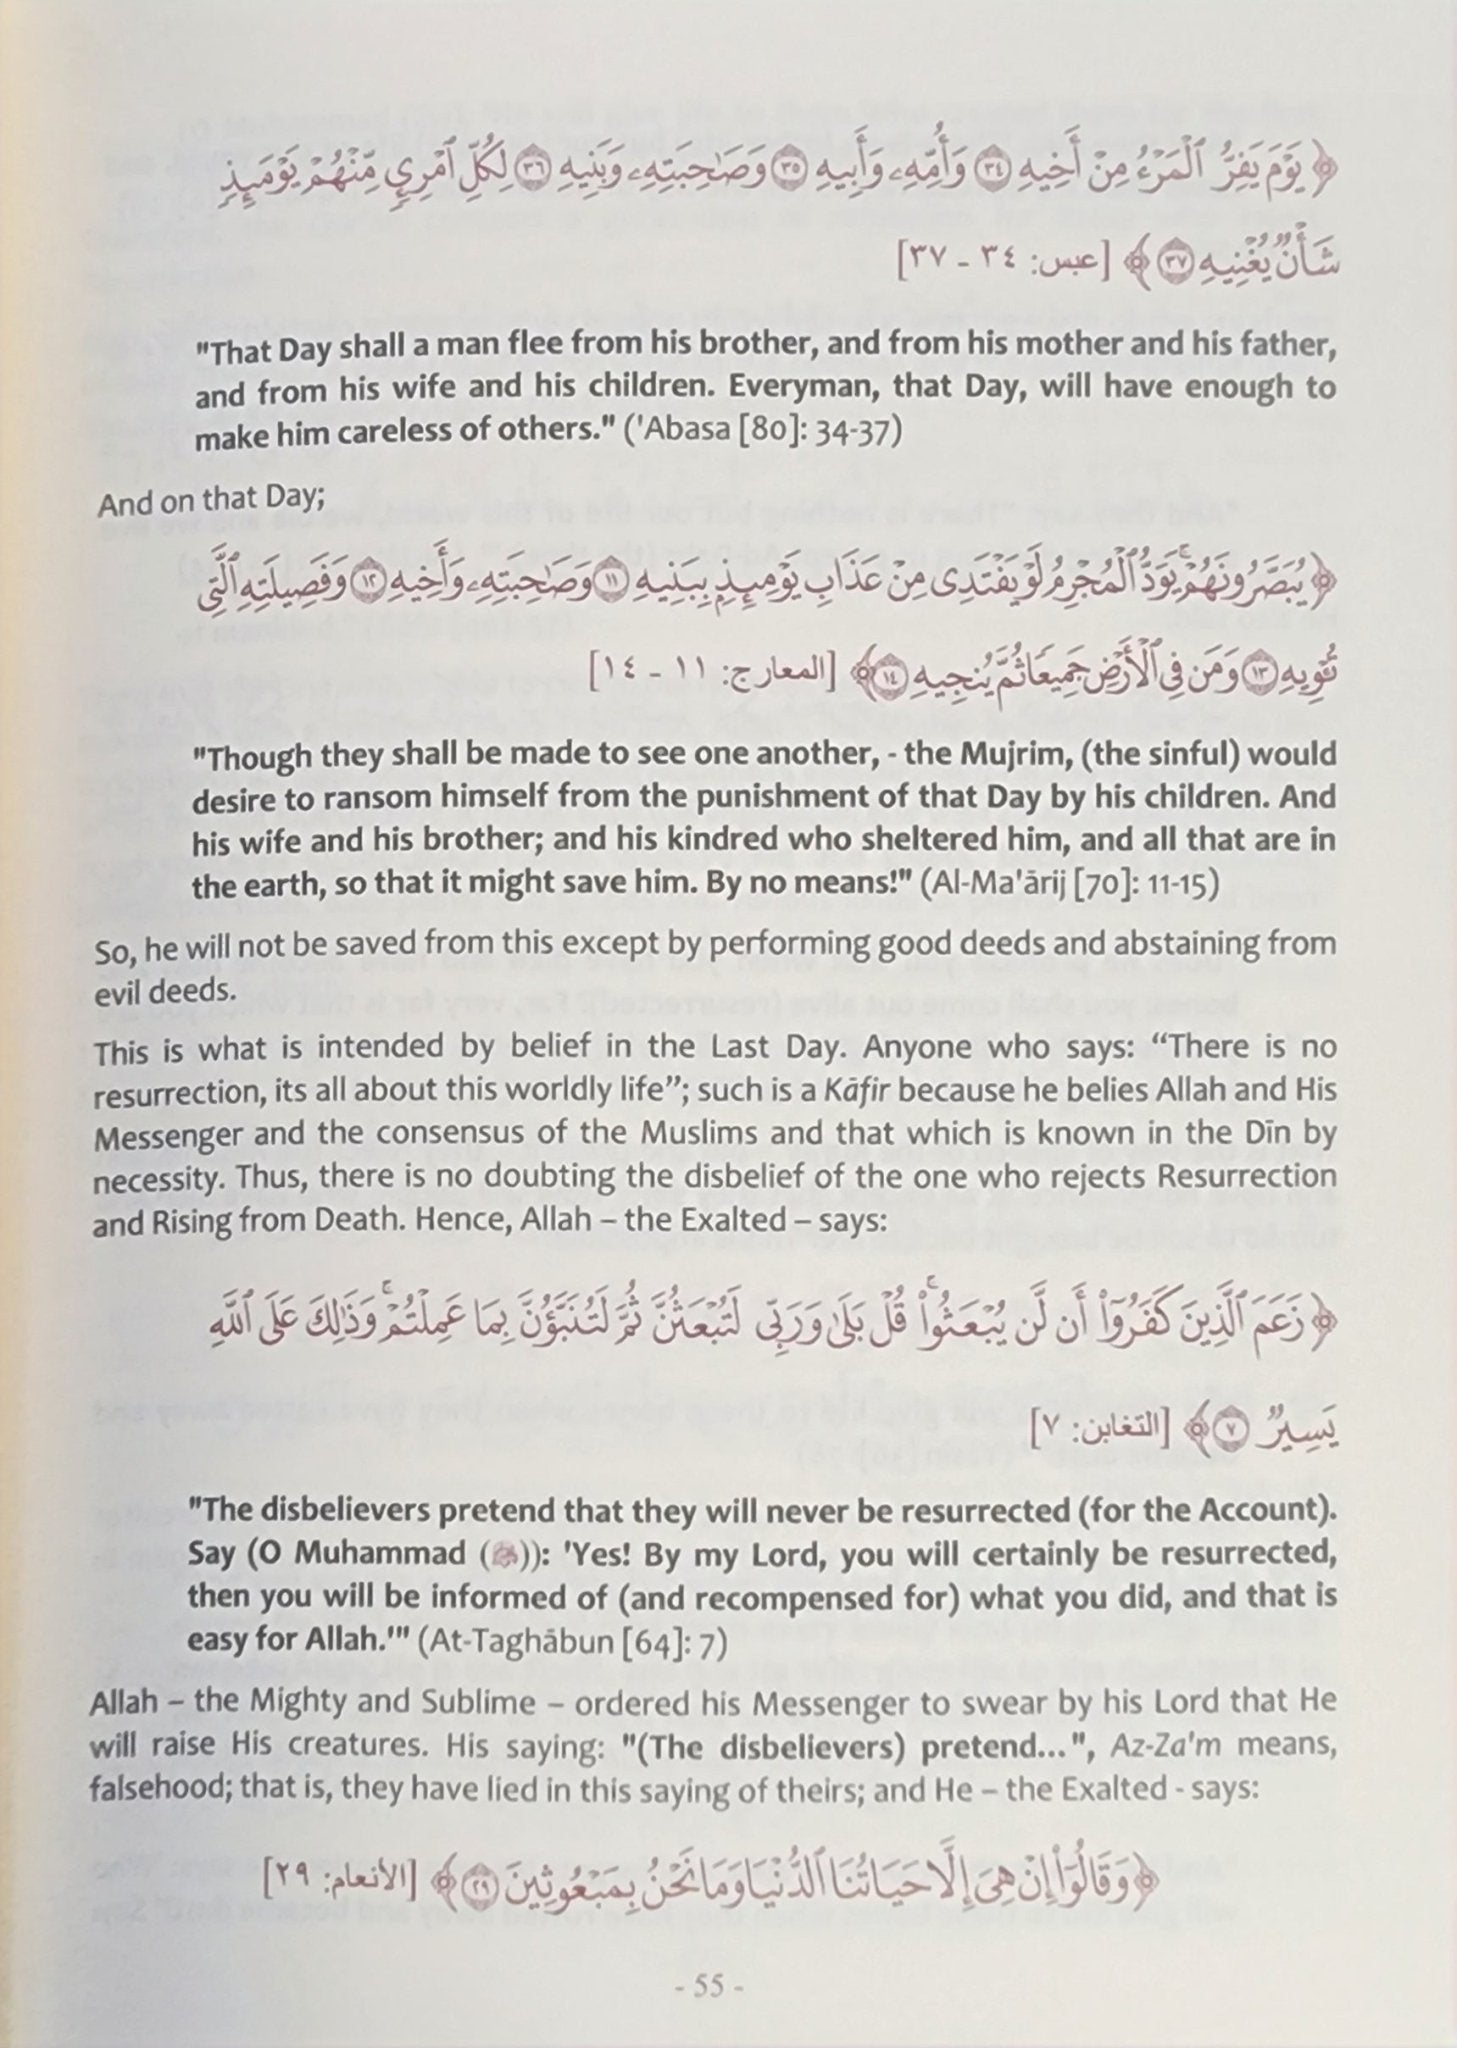 ﴿ يَوْمَ يَفِرُّ ٱلْمَرْءُ مِنْ أَخِيهِ ٣٤ وَأُمِّهِۦ وَأَبِيهِ ٣٥ وَصَـٰحِبَتِهِۦ وَبَنِيهِ ٣٦ لِكُلِّ ٱمْرِئٍ مِّنْهُمْ يَوْمَئِذٍ
شَأْنٌ يُغْنِيهِ ٣٧ ﴾ [عبس: ٣٤ - ٣٧]
"That Day shall a man flee from his brother, and from his mother and his father,
and from his wife and his children. Everyman, that Day, will have enough to
make him careless of others." ('Abasa [80]: 34-37)
And on that Day;
﴿ يُبَصَّرُونَهُمْ ۚ يَوَدُّ ٱلْمُجْرِمُ لَوْ يَفْتَدِى مِنْ عَذَابِ يَوْمِئِذٍۭ بِبَنِيهِ ١١ وَصَـٰحِبَتِهِۦ وَأَخِيهِ ١٢ وَفَصِيلَتِهِ ٱلَّتِى
تُـْٔوِيهِ ١٣ وَمَن فِى ٱلْأَرْضِ جَمِيعًا ثُمَّ يُنجِيهِ ١٤ ﴾ [المعارج: ١١ - ١٤]
"Though they shall be made to see one another, - the Mujrim, (the sinful) would
desire to ransom himself from the punishment of that Day by his children. And
his wife and his brother; and his kindred who sheltered him, and all that are in
the earth, so that it might save him. By no means!" (Al-Ma'ārij [70]: 11-15)
So, he will not be saved from this except by performing good deeds and abstaining from
evil deeds.
This is what is intended by belief in the Last Day. Anyone who says: “There is no
resurrection, its all about this worldly life”; such is a Kāfir because he belies Allah and His
Messenger and the consensus of the Muslims and that which is known in the Dīn by
necessity. Thus, there is no doubting the disbelief of the one who rejects Resurrection
and Rising from Death. Hence, Allah – the Exalted – says:
﴿ زَعَمَ ٱلَّذِينَ كَفَرُوٓا۟ أَن لَّن يُبْعَثُوا۟ ۚ قُلْ بَلَىٰ وَرَبِّى لَتُبْعَثُنَّ ثُمَّ لَتُنَبَّؤُنَّ بِمَا عَمِلْتُمْ ۚ وَذَٰلِكَ عَلَى ٱللَّهِ
يَسِيرٌ ٧ ﴾ [التغابن: ٧]
"The disbelievers pretend that they will never be resurrected (for the Account).
Say (O Muhammad (ﷺ)): 'Yes! By my Lord, you will certainly be resurrected,
then you will be informed of (and recompensed for) what you did, and that is
easy for Allah.'" (At-Taghābun [64]: 7)
Allah – the Mighty and Sublime – ordered his Messenger to swear by his Lord that He
will raise His creatures. His saying: "(The disbelievers) pretend...", Az-Za'm means,
falsehood; that is, they have lied in this saying of theirs; and He – the Exalted - says:
﴿ وَقَالُوٓا۟ إِنْ هِىَ إِلَّا حَيَاتُنَا ٱلدُّنْيَا وَمَا نَحْنُ بِمَبْعُوثِينَ ٢٩ ﴾ [الأنعام: ٢٩]
- 55 -